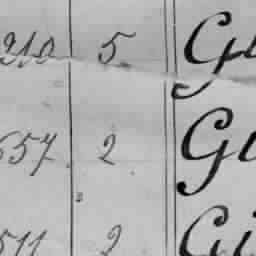 210 5 Gu
657 2 Gu
511 2 Gi